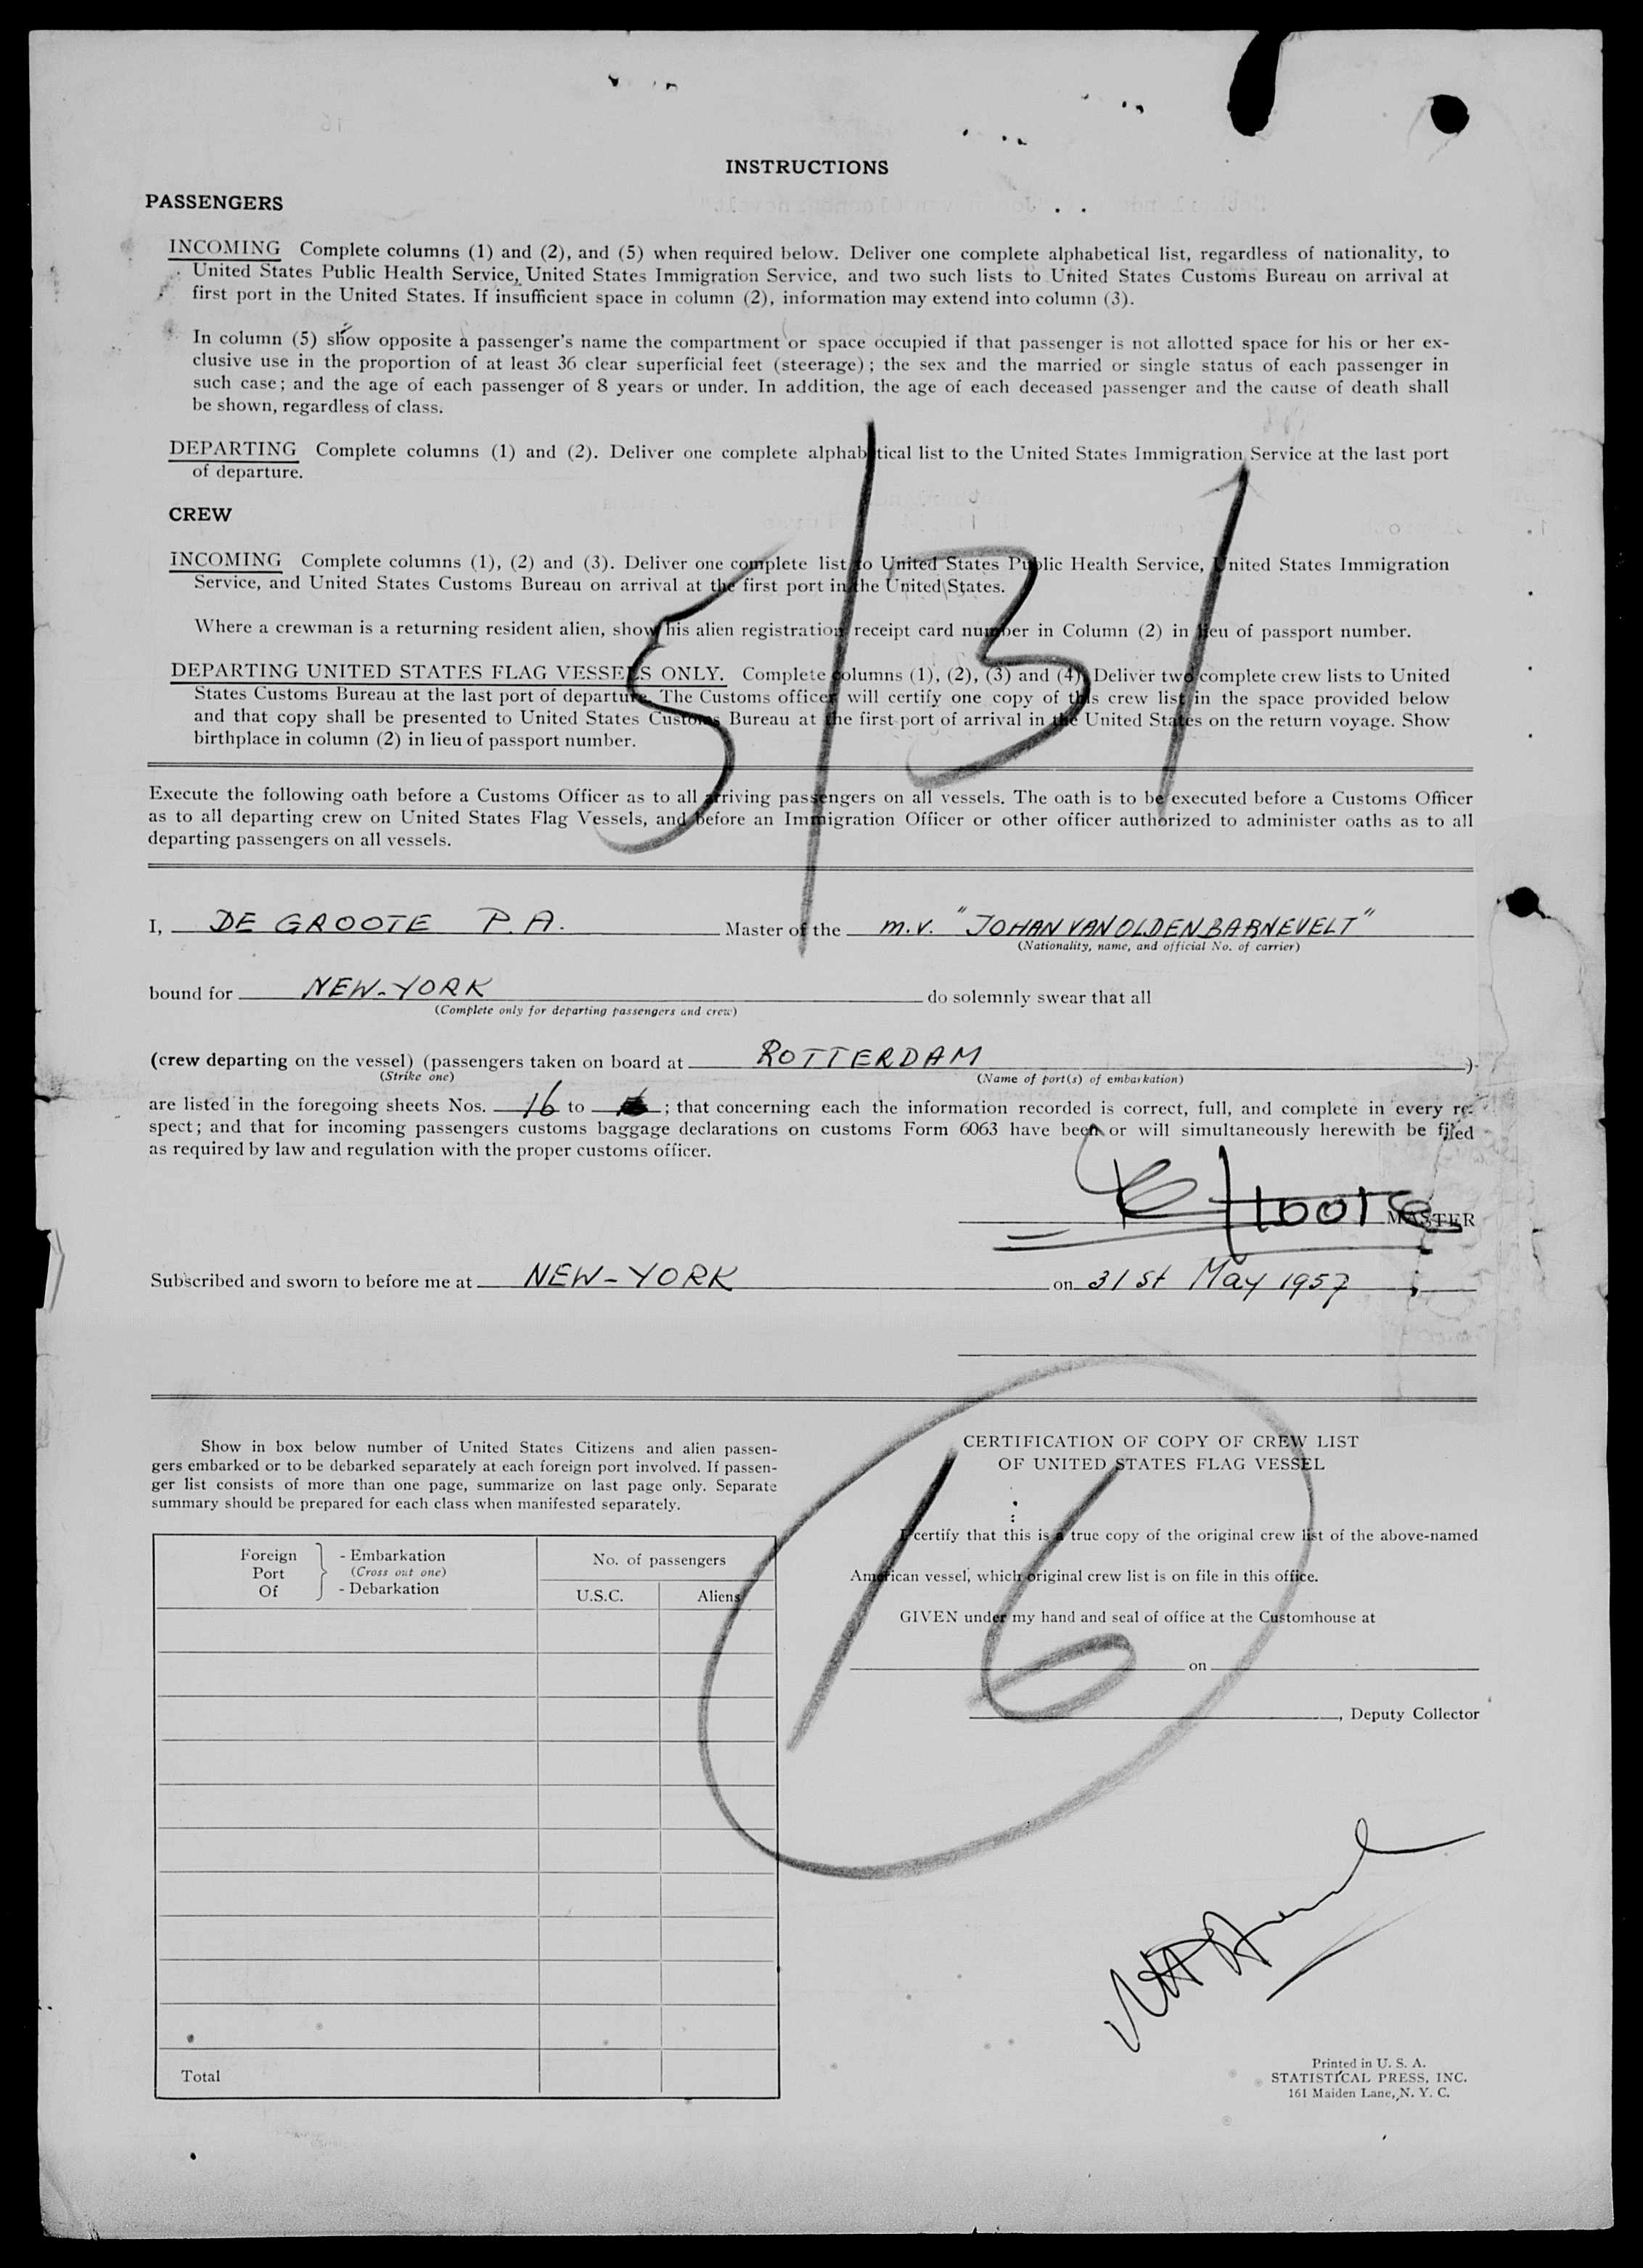 INSTRUCTIONS
PASSENGERS
INCOMING Complete columns (1) and (2), and (5) when required below. Deliver one complete alphabetical list, regardless of nationality, to
United States Public Health Service, United States Immigration Service, and two such lists to United States Customs Bureau on arrival at
first port in the United States. If insufficient space in column (2), information may extend into column (3).
In column (5) show opposite a passenger's name the compartment or space occupied if that passenger is not allotted space for his or her ex-
clusive use in the proportion of at least 36 clear superficial feet (steerage); the sex and the married or single status of each passenger in
such case; and the age of each passenger of 8 years or under. In addition, the age of each deceased passenger and the cause of death shall
be shown, regardless of class.
DEPARTING Complete columns (1) and (2). Deliver one complete alphabetical list to the United States Immigration Service at the last port
of departure.
CREW
INCOMING Complete columns (1), (2) and (3). Deliver one complete list to United States Public Health Service, United States Immigration
Service, and United States Customs Bureau on arrival at the first port in the United States.
Where a crewman is a returning resident alien, show his alien registration receipt card number in Column (2) in lieu of passport number.
DEPARTING UNITED STATES FLAG VESSELS ONLY. Complete columns (1), (2), (3) and (4). Deliver two complete crew lists to United
States Customs Bureau at the last port of departure. The Customs officer will certify one copy of this crew list in the space provided below
and that copy shall be presented to United States Customs Bureau at the first port of arrival in the United States on the return voyage. Show
birthplace in column (2) in lieu of passport number.
5/31
Execute the following oath before a Customs Officer as to all arriving passengers on all vessels. The oath is to be executed before a Customs Officer
as to all departing crew on United States Flag Vessels, and before an Immigration Officer or other officer authorized to administer oaths as to all
departing passengers on all vessels.
I, DE GROOTE P.A. Master of the m.v. "JOHAN VAN OLDENBARNEVELT"
(Nationality, name, and official No. of carrier)
bound for NEW-YORK do solemnly swear that all
(Complete only for departing passengers and crew)
(crew departing on the vessel) (passengers taken on board at ROTTERDAM )
(Strike one) (Name of port(s) of embarkation)
are listed in the foregoing sheets Nos. 16 to ; that concerning each the information recorded is correct, full, and complete in every re-
spect; and that for incoming passengers customs baggage declarations on customs Form 6063 have been or will simultaneously herewith be filed
as required by law and regulation with the proper customs officer.
MASTER
Subscribed and sworn to before me at NEW-YORK on 31st May 1957
Show in box below number of United States Citizens and alien passen-
gers embarked or to be debarked separately at each foreign port involved. If passen-
ger list consists of more than one page, summarize on last page only. Separate
summary should be prepared for each class when manifested separately.
Foreign Port Of - Embarkation (Cross out one) - Debarkation
No. of passengers
U.S.C. Aliens
Total
CERTIFICATION OF COPY OF CREW LIST
OF UNITED STATES FLAG VESSEL
I certify that this is a true copy of the original crew list of the above-named
American vessel, which original crew list is on file in this office.
GIVEN under my hand and seal of office at the Customhouse at
on
, Deputy Collector
16
Printed in U. S. A.
STATISTICAL PRESS, INC.
161 Maiden Lane, N. Y. C.